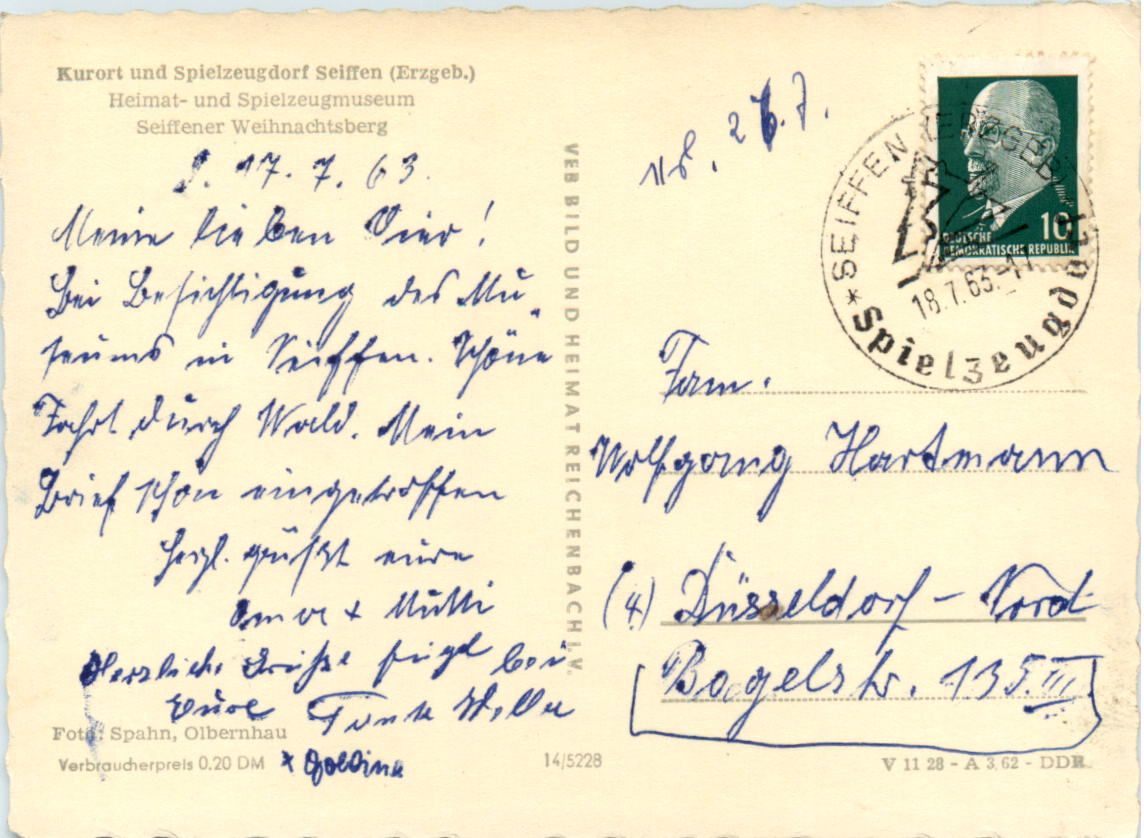 Kurort und Spielzeugdorf Seiffen (Erzgeb.)
Heimat- und Spielzeugmuseum
Seiffener Weihnachtsberg
17. 7. 63.
Meine lieben Vier!
Bei Besichtigung des Mu-
seums in Seiffen. Schöne
Fahrt durch Wald. Mein
Brief schon eingetroffen
Herzl. grüßt eure
Oma + Mutti
Herzliche Grüße fügt bei
Eure Tante
+
Foto: Spahn, Olbernhau
Verbraucherpreis 0.20 DM
14/5228
VEB BILD UND HEIMAT REICHENBACH I. V.
V 11 28 - A 3,62 - DDR
SEIFFEN (ERZGEB)
18.7.63.-11
* Spielzeugdorf
10
DEUTSCHE
DEMOKRATISCHE REPUBLIK
Fam.
Wolfgang Hartmann
(4) Düsseldorf - Nord
Bagelstr. 135 III